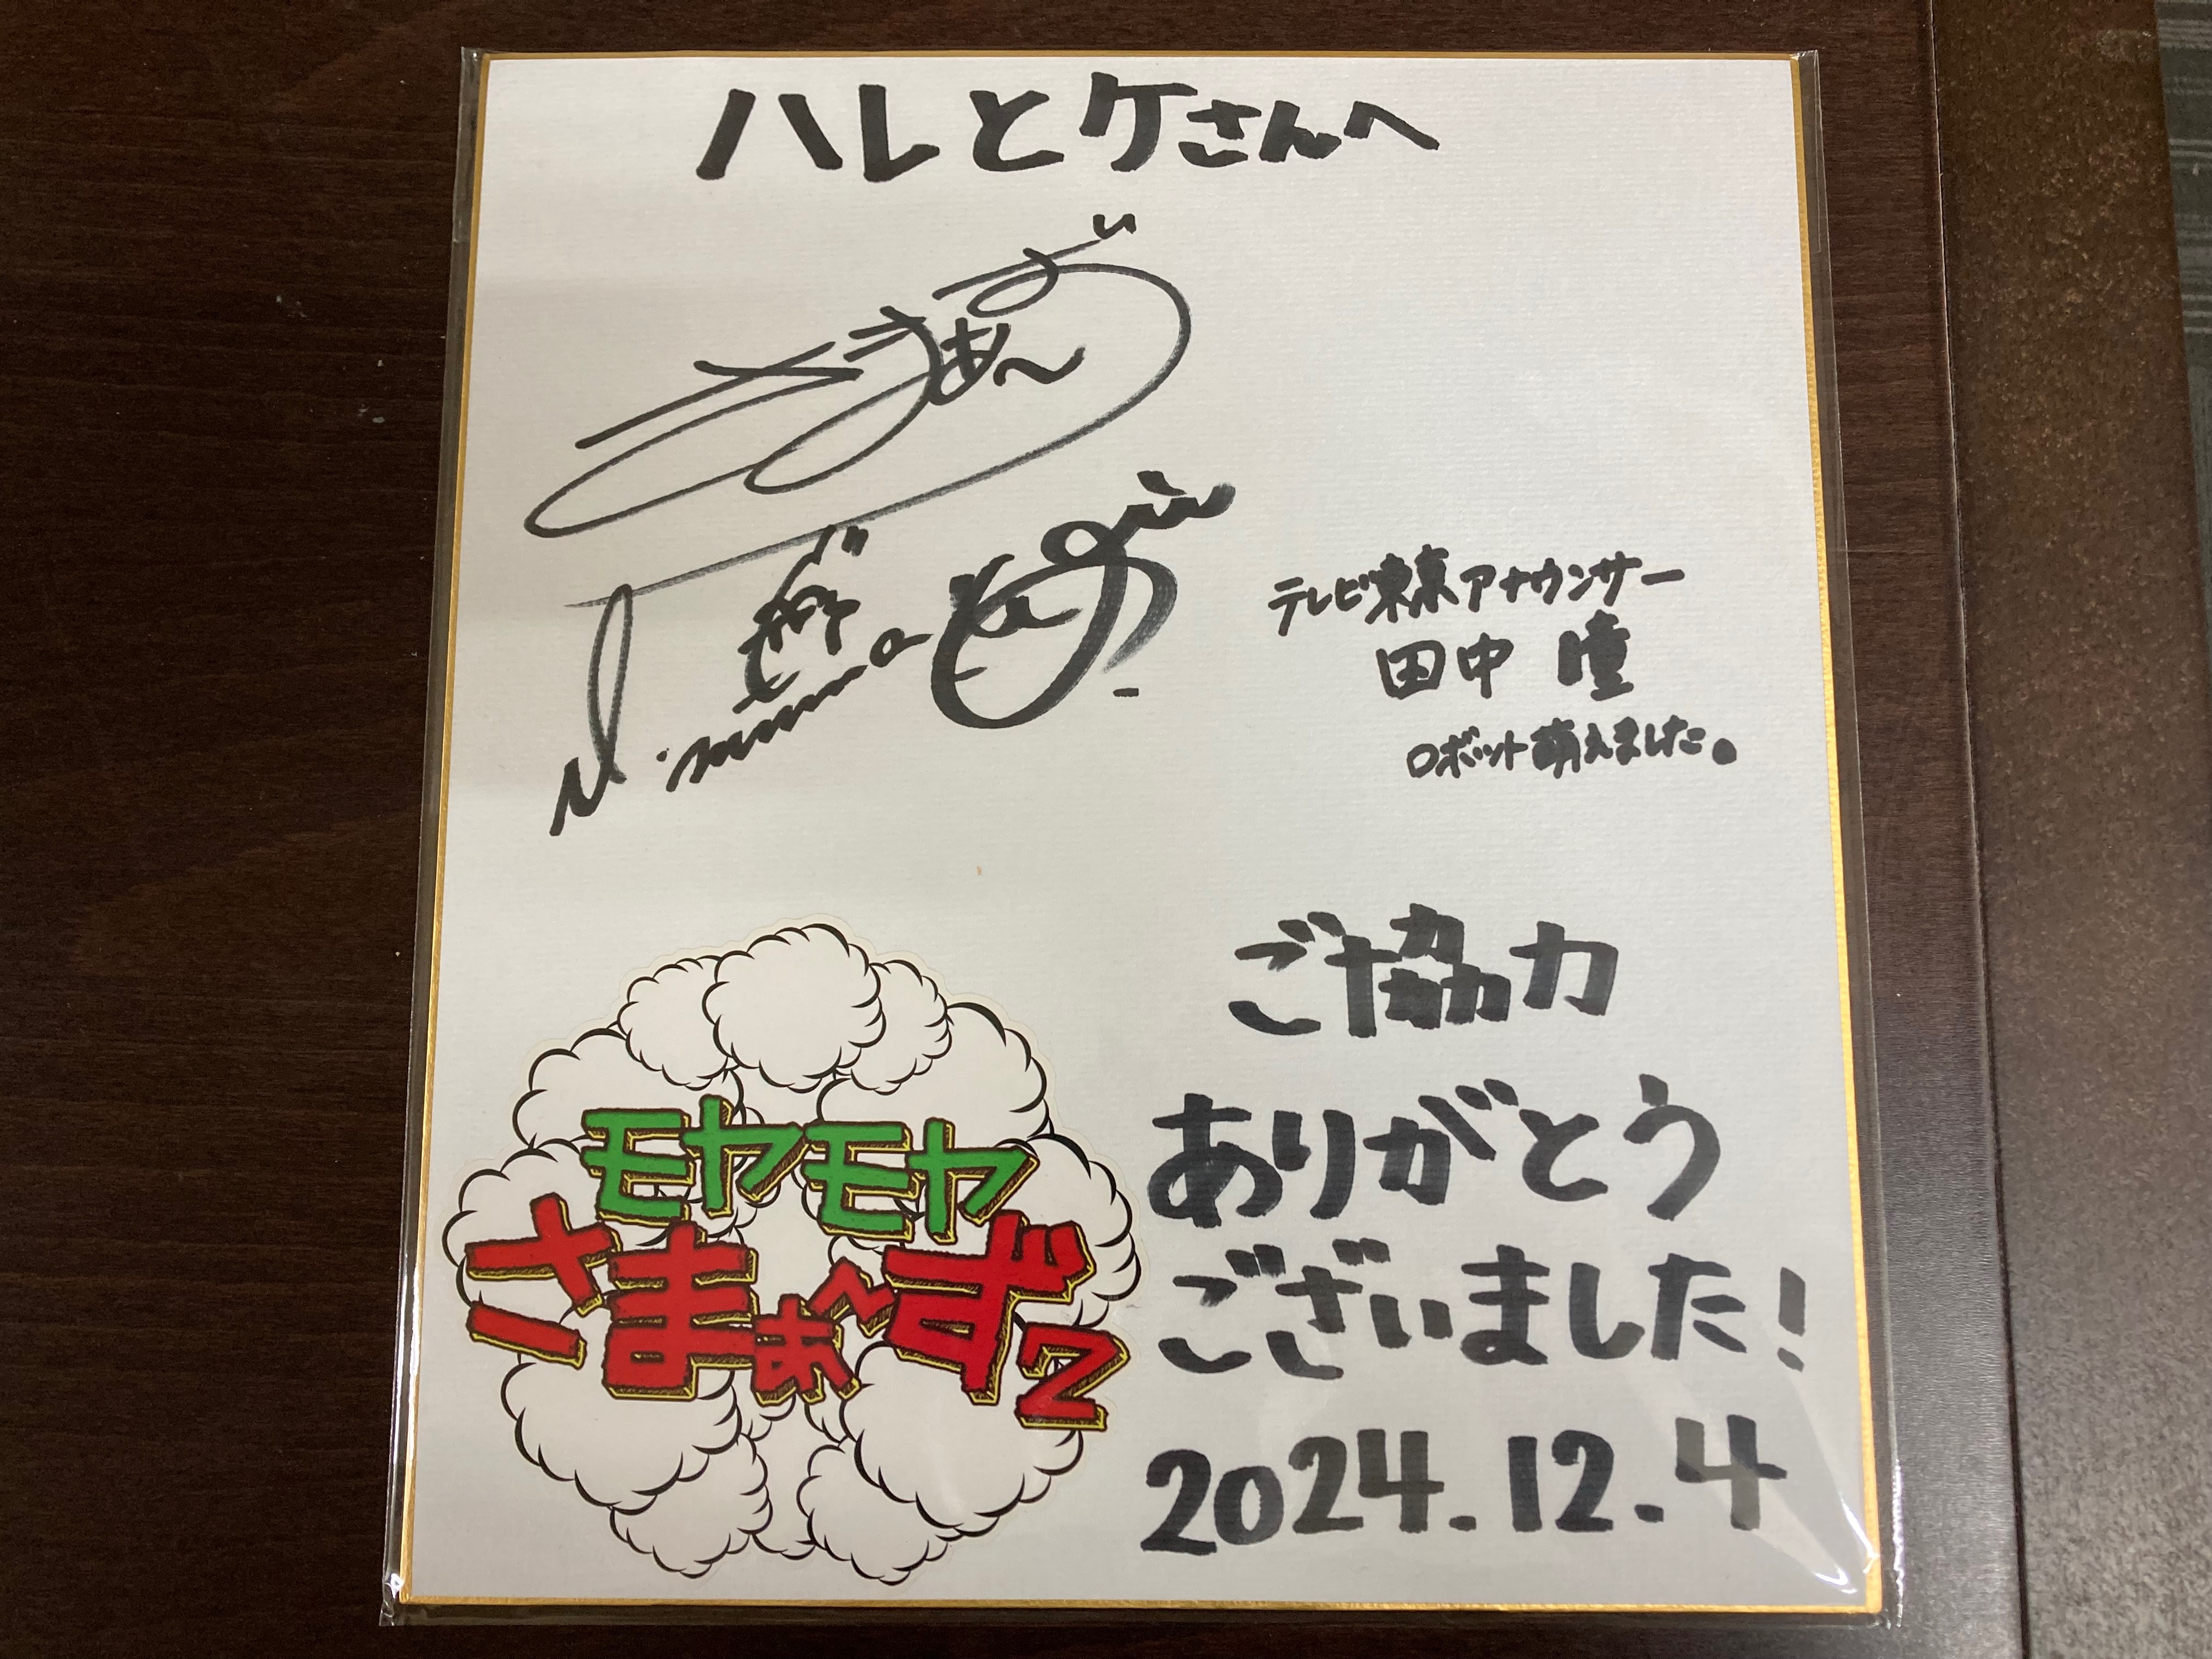 ハレとケさんへ
さまぁ〜ず
テレビ東京アナウンサー
田中 瞳
ロボット萌えました。
ご協力
ありがとう
ございました!
2024.12.4
モヤモヤ
さまぁ〜ず2